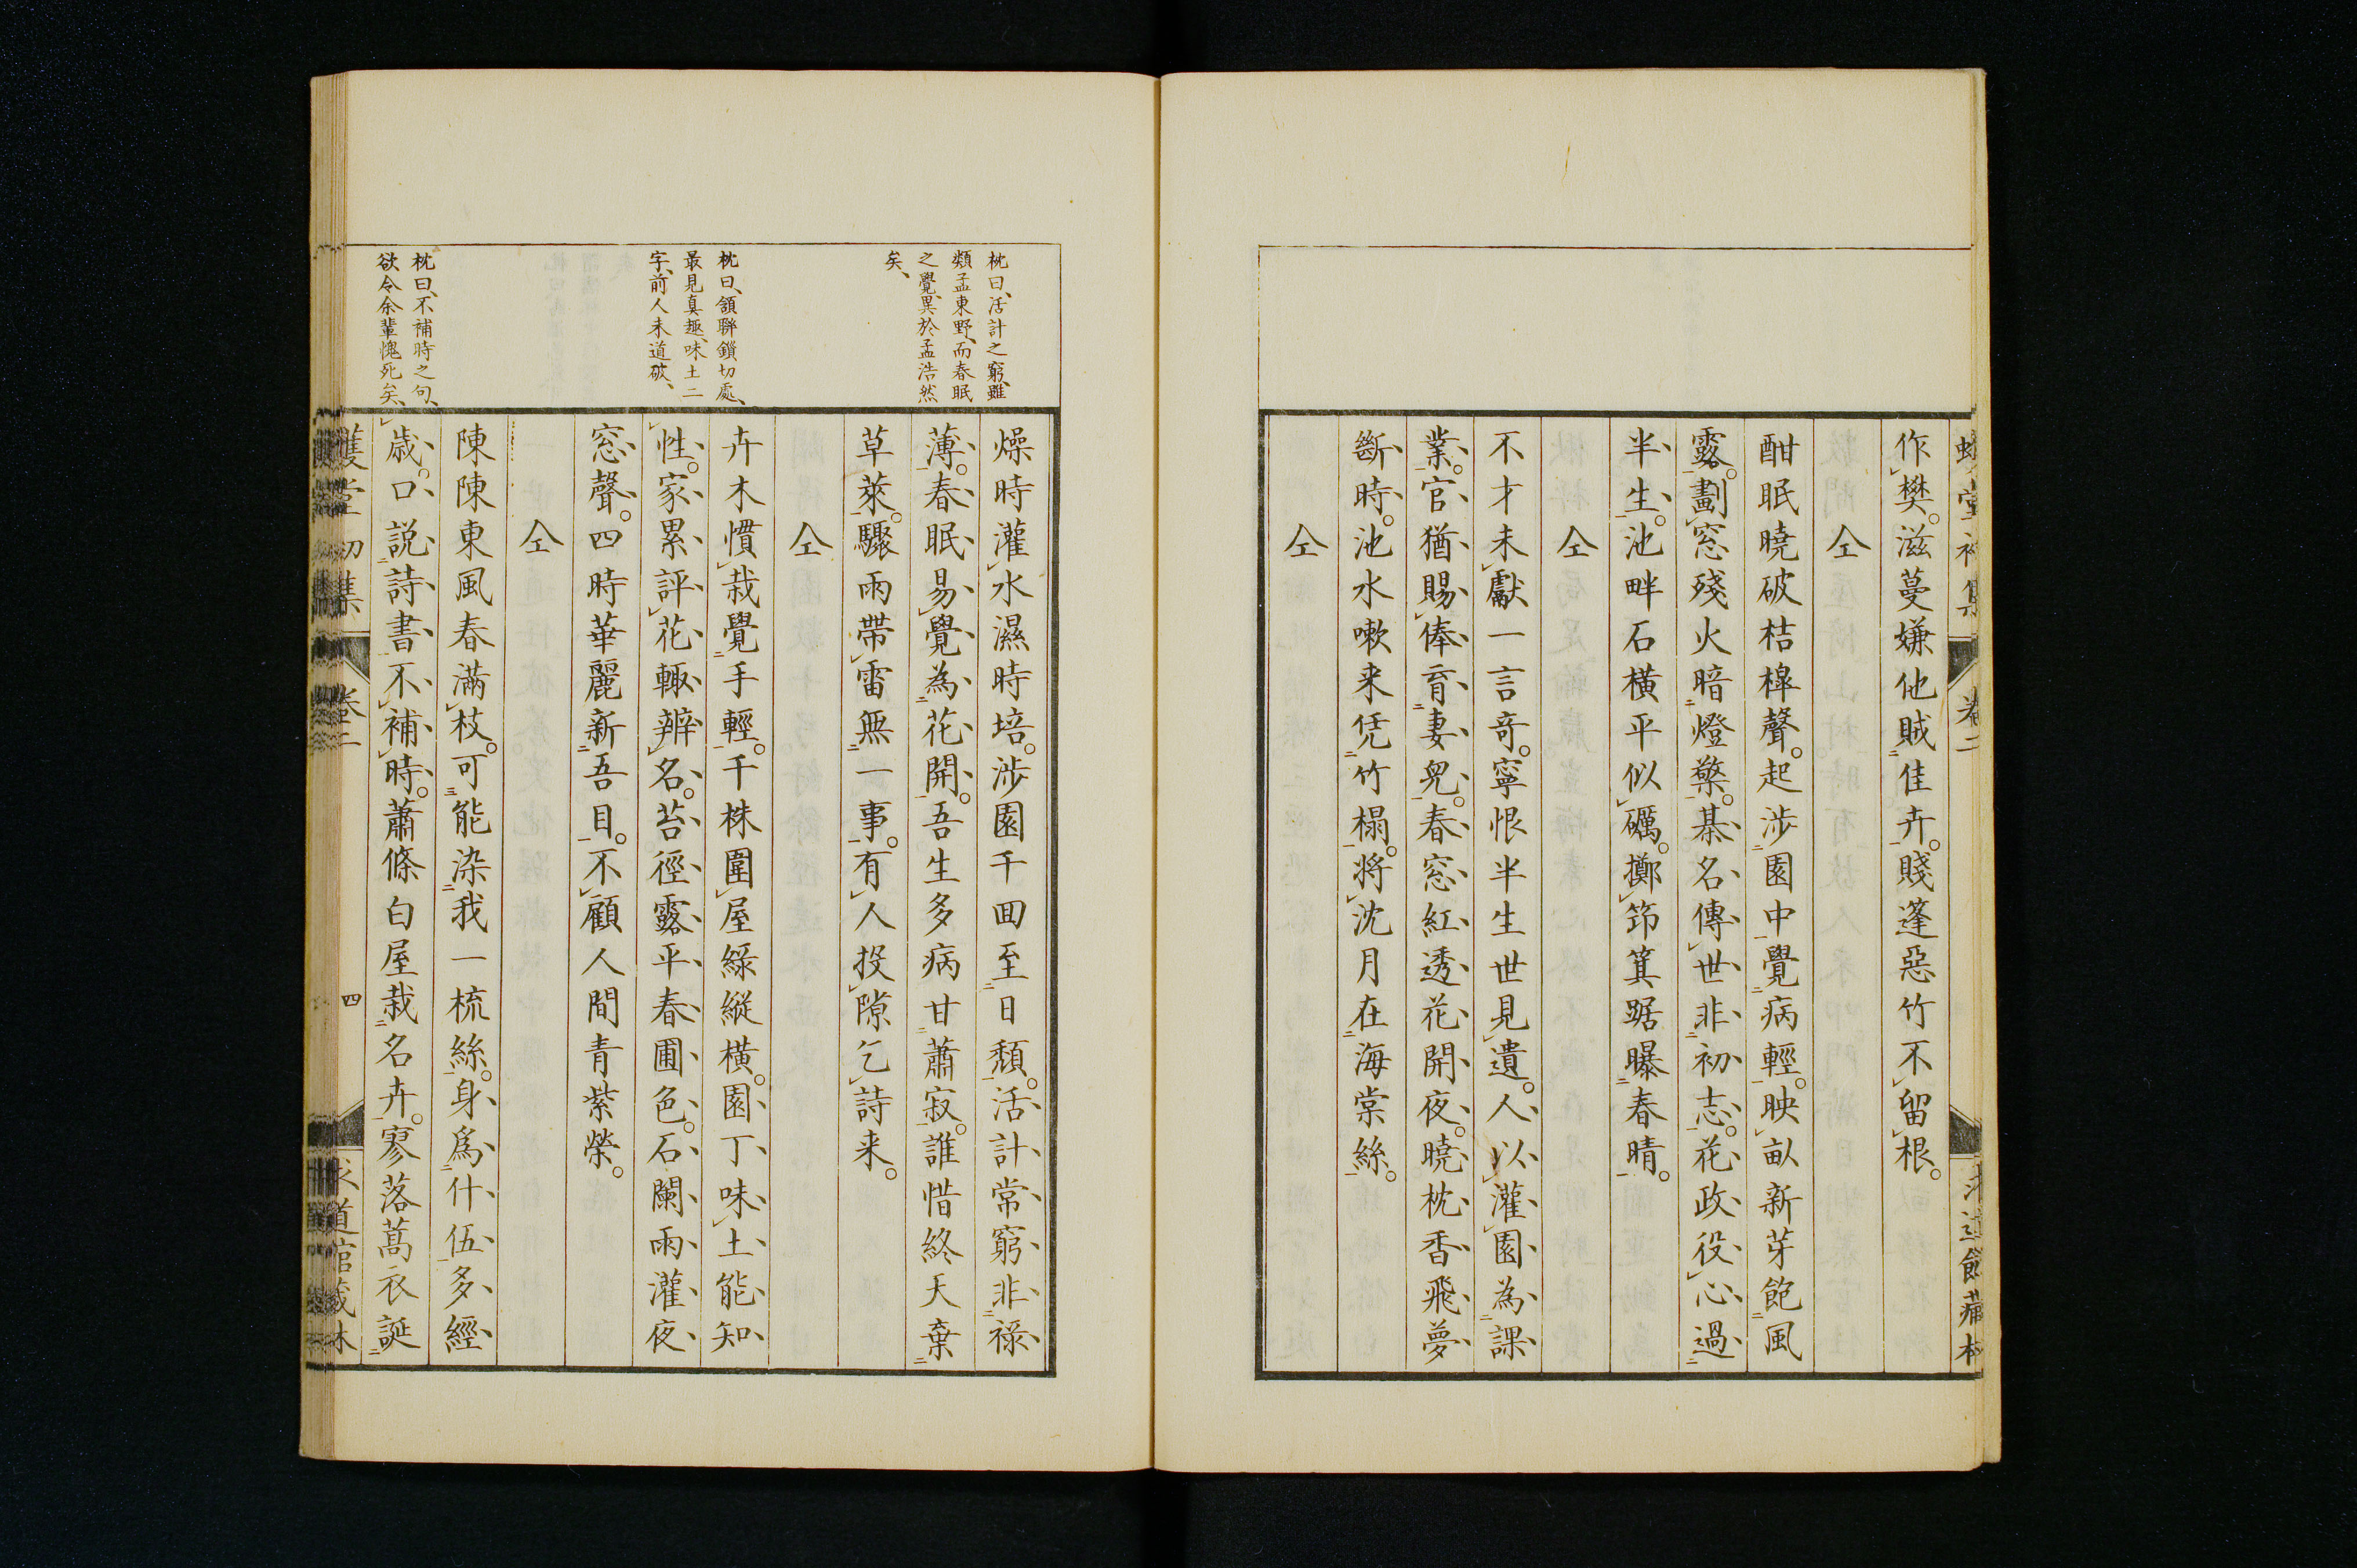 作樊。滋蔓嫌他賊佳卉。賤蓬惡竹不留根。
仝
酣眠曉破桔槹聲。起渉園中覺病輕。映畆新芽飽風
露。劃窓殘火暗燈檠。棊名傳世非初志。花政役心過
半生。池畔石橫平似礪。擲筇箕踞曝春晴。
仝
不才未獻一言竒。寧恨半生世見遺。人以灌園為課
業。官猶賜俸育妻兒。春窓紅透花開夜。曉枕香飛夢
斷時。池水嗽来凭竹榻。將沈月在海棠絲。
仝
枕曰、活計之窮、雖
類孟東野、而春眠
之覺、異於孟浩然
矣、
燥時灌水濕時培。渉園千回至日頽。活計常窮非祿
薄。春眠易覺為花開。吾生多病甘蕭寂。誰惜終天棄
草萊。驟雨帶雷無一事。有人投隙乞詩来。
仝
枕曰、頷聯鎖切處、
最見真趣、味土二
字、前人未道破、
卉木慣栽覺手輕。千株圍屋綠縱橫。園丁味土能知
性。家累評花輙辨名。苔徑露平春圃色。石闌雨灌夜
窓聲。四時華麗新吾目。不顧人間青紫榮。
仝
枕曰、不補時之句、
欲令余輩愧死矣、
陳陳東風春滿枝。可能染我一梳絲。身爲什伍多經
歳。口説詩書不補時。蕭條白屋栽名卉。寥落萵衣誕
四